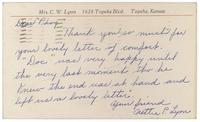 Mrs. C. W. Lyon 1628 Topeka Blvd. Topeka, Kansas
Dear
Thank you so much for
your lovely letter of comfort.
"Doc" was very happy until
the very last moment tho he
knew the end was at hand and
left us a lovely letter.
Your friend,
P. Lyon